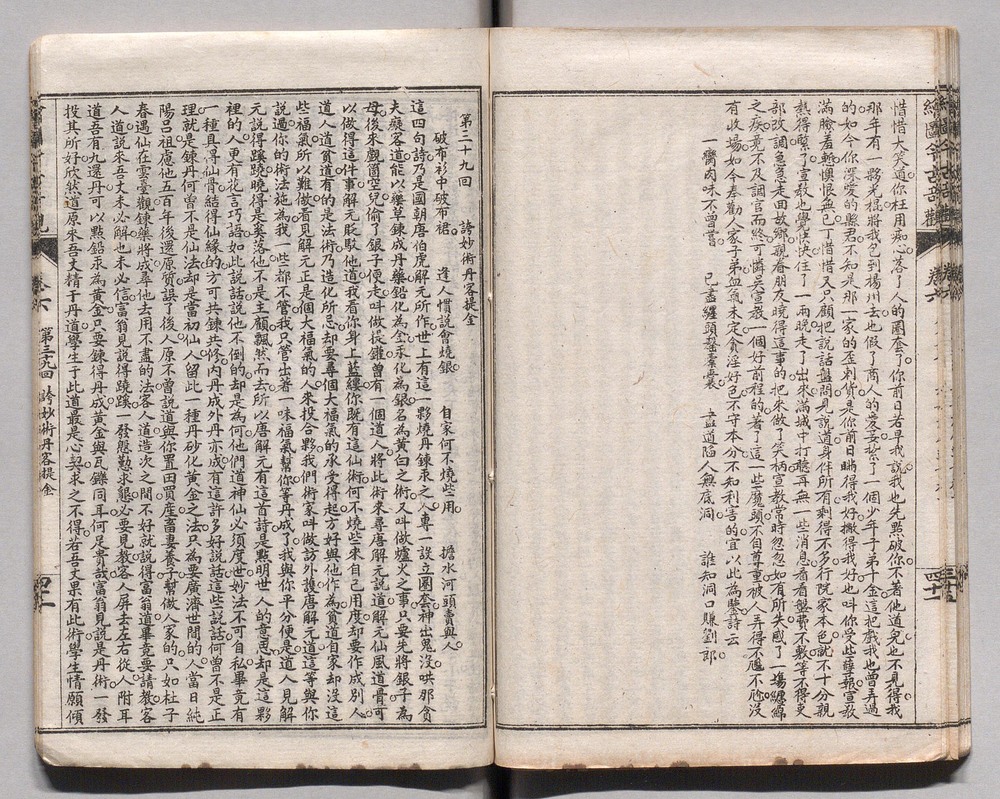 繪圖今古奇觀
卷六
惜惜大笑道你枉用痴心落了人的圈套了你前日若早我說我也先點破你不著他道兒也不見得我
那年有一夥光棍將我包到揚州去也假了商人的愛妾紮了一個少年子弟千金這把戲我也曾弄過
的如今你深愛的縣君不知是那一家的歪剌貨是你前日瞞得我好撇得我好也叫你受些薛報宣敎
滿臉羞慚懊恨無已丁惜惜又只顧把說話盤問見說道身伴所有剩得不多行院家本色就不十分親
熱得緊了宣敎也覺怏怏住了一兩晚走了出來滿城中打聽再無一些消息看看盤費不彀等不得吏
部改調急急走回故鄉親眷朋友曉得這事的把來做了笑柄宣敎常時忽忽如有所失感了一塲纏綿
之疾竟不及調官而終可憐吳宣敎一個好前程的著了這一些魔頭不自尊重被人弄得不尷不尬沒
有收場如今奉勸人家子弟血氣未定貪淫好色不守本分不知利害的宜以此爲鑒詩云
一臠肉味不曾嘗　已盡纏頭罄橐裝　盡道陷人無底洞　誰知洞口賺劉郎
第三十九回　誇妙術丹客提金
破布衫中破布裙　逢人慣說會燒銀　自家何不燒些用　擔水河頭賣與人
這四句詩乃是國朝唐伯虎解元所作世上有這一夥燒丹鍊汞之人專一設立圈套神出鬼沒哄那貪
夫癡客道能以藥草鍊成丹藥鉛化爲金汞化爲銀名爲黃白之術又叫做爐火之事只要先將銀子爲
母後來覷箇空兒偷了銀子便走叫做提罐曾有一個道人將此術來尋唐解元說道解元仙風道骨可
以做得這件事解元貶駁他道我看你身上藍縷你既有這仙術何不燒些來自己用度却要作成別人
道人道貧道有的是法術乃造化所忌却要尋個大福氣的承受得起方好與他作爲貧道自家却沒這
些福氣所以難做看見解元正是個大福氣的人來投合夥我們術家叫做訪外護唐解元道這等與你
說過你的術法施爲我一些都不管我只管出著一味福氣幫你等丹成了我與你平分便是道人見解
元說得蹊蹺曉得是奚落他不是主顧飄然而去所以唐解元有這首詩是點明世人的意思却是這夥
裡的人更有花言巧語如此說話說他不倒的却是爲何他們道神仙必須度世妙法不可自私畢竟有
一種具得仙骨結得仙緣的方可共鍊共修內丹成外丹亦成有這許多好說話這些說話何曾不是正
理就是鍊丹何曾不是仙法却是當初仙人留此一種丹砂化黃金之法只爲要廣濟世間的人當日純
陽呂祖慮他五百年後還原質誤了後人原不曾說道與你置田買產畜妻養子幫做人家的只如杜子
春遇仙在雲臺觀鍊藥將成尋他去用不盡的法客人道造次之間不好就說得富翁道畢竟要請教客
人道說來吾丈未必解也未必信富翁見說得蹺蹊一發慇懃求懇必要見教客人屏去左右從人附耳
道吾有九還丹可以點鉛汞爲黃金只要鍊得丹成黃金與瓦礫同耳何足貴哉富翁見說是丹術一發
投其所好欣然道原來吾丈精于丹道學生于此道最是心契求之不得若吾丈果有此術學生情願傾
卷六
第三十九回　誇妙術丹客提金
四十一